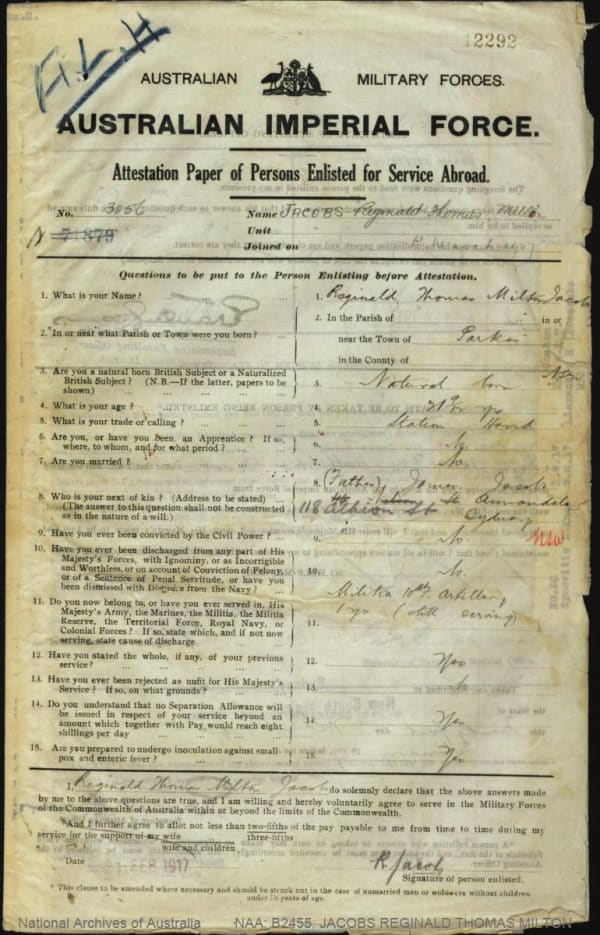 12292
AUSTRALIAN MILITARY FORCES.
AUSTRALIAN IMPERIAL FORCE.
Attestation Paper of Persons Enlisted for Service Abroad.
No. 3856 Name JACOBS Reginald Thomas Milton
N 7879 Unit
Joined on
Questions to be put to the Person Enlisting before Attestation.
1. What is your Name? ... ... 1. Reginald Thomas Milton Jacobs
2. In or near what Parish or Town were you born? ... 2. In the Parish of in or
near the Town of Parkes
in the County of NSW
3. Are you a natural born British Subject or a Naturalized
British Subject? (N.B.—If the latter, papers to be
shown) 3. Natural born
4. What is your age? 4.
5. What is your trade or calling? 5. Station Hand
6. Are you, or have you been an Apprentice? If so,
where, to whom, and for what period? 6. No.
7. Are you married? 7. No.
8. Who is your next of kin? (Address to be stated)
(The answer to this question shall not be constructed
as in the nature of a will.) 8. (Father) James Jacobs
St Annandale
118 Albion St Sydney
NSW
9. Have you ever been convicted by the Civil Power? 9. No.
10. Have you ever been discharged from any part of His
Majesty's Forces, with Ignominy, or as Incorrigible
and Worthless, or on account of Conviction of Felony,
or of a Sentence of Penal Servitude, or have you
been dismissed with Disgrace from the Navy? 10. No.
11. Do you now belong to, or have you ever served in, His
Majesty's Army, the Marines, the Militia, the Militia
Reserve, the Territorial Force, Royal Navy, or
Colonial Forces? If so, state which, and if not now
serving, state cause of discharge 11. Militia Artillery
1 yr (still serving)
12. Have you stated the whole, if any, of your previous
service? 12. Yes
13. Have you ever been rejected as unfit for His Majesty's
Service? If so, on what grounds? 13. No
14. Do you understand that no Separation Allowance will
be issued in respect of your service beyond an
amount which together with Pay would reach eight
shillings per day 14. Yes
15. Are you prepared to undergo inoculation against small-
pox and enteric fever? 15. Yes
I, Reginald Thomas Milton Jacobs do solemnly declare that the above answers made
by me to the above questions are true, and I am willing and hereby voluntarily agree to serve in the Military Forces
of the Commonwealth of Australia within or beyond the limits of the Commonwealth.
*And I further agree to allot not less than two-fifths of the pay payable to me from time to time during my
three-fifths
service for the support of my wife
wife and children
Date FEB 1917
R. Jacobs
Signature of person enlisted.
* This clause to be amended where necessary and should be struck out in the case of unmarried men or widowers without children
under 18 years of age.
National Archives of Australia NAA: B2455, JACOBS REGINALD THOMAS MILTON